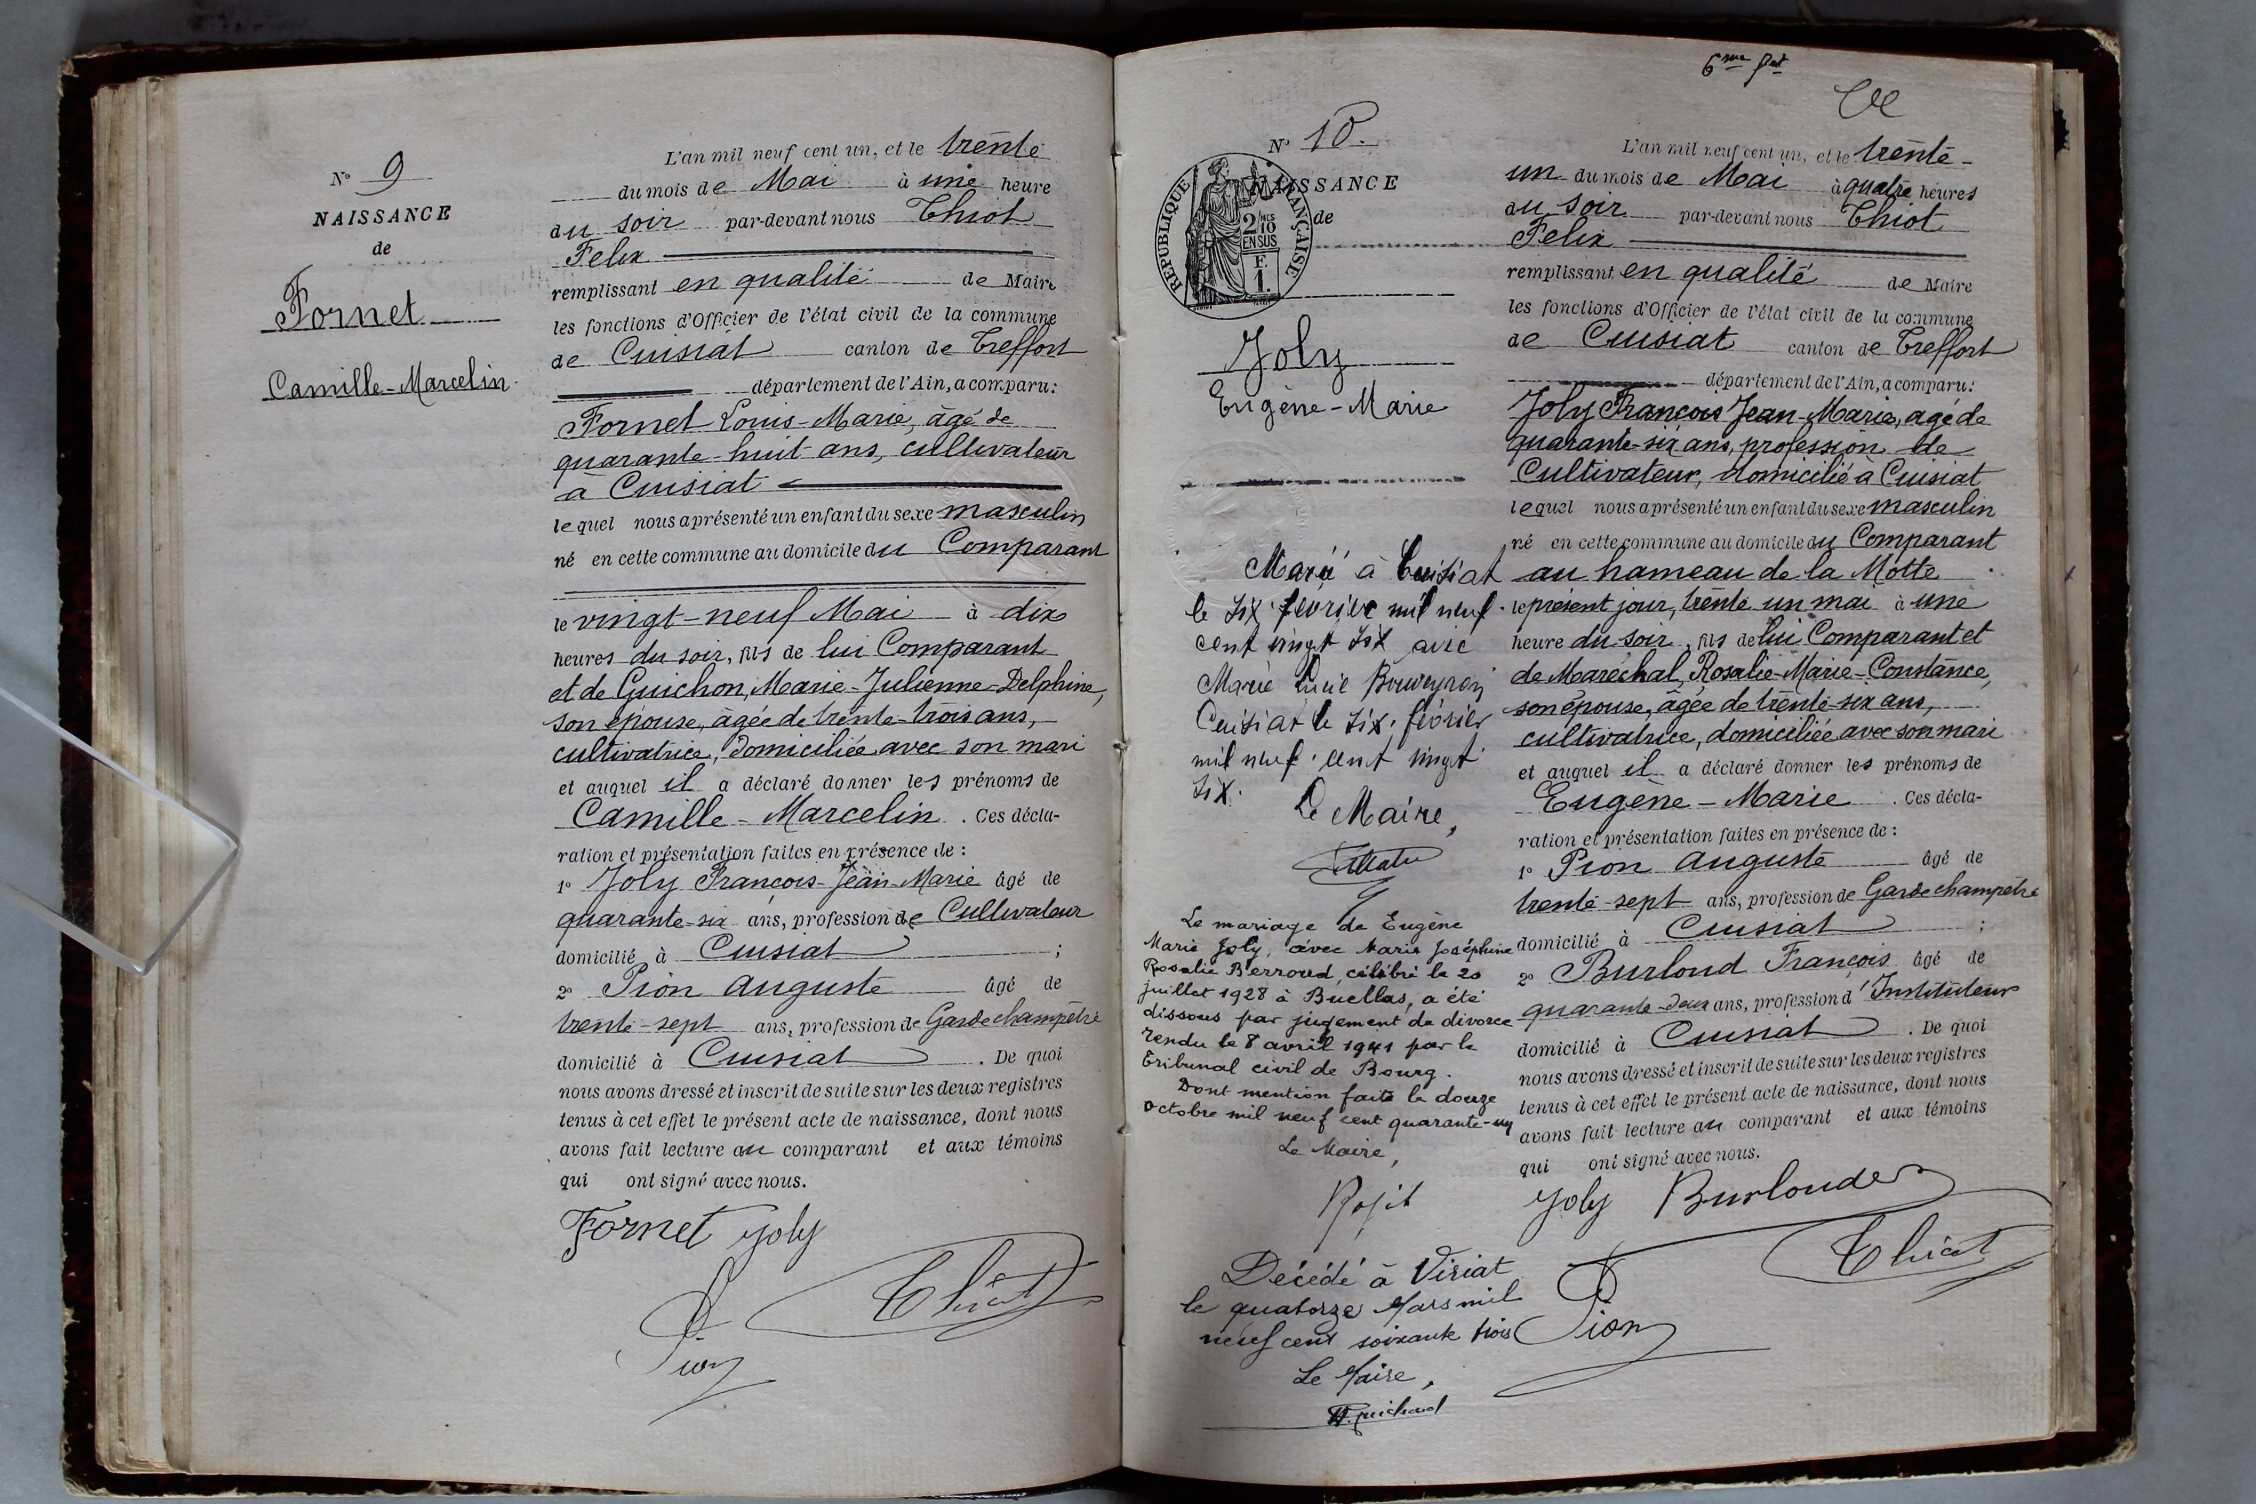 N° 9
NAISSANCE
de
Fornet
Camille-Marcelin
L'an mil neuf cent un, et le trente
du mois de Mai à une heure
du soir par-devant nous Thiot
Felix
remplissant en qualité de Maire
les fonctions d'Officier de l'état civil de la commune
de Cuisiat canton de Treffort
département de l'Ain, a comparu:
Fornet Louis-Marie, âgé de
quarante-huit ans, cultivateur
à Cuisiat
lequel nous a présenté un enfant du sexe masculin
né en cette commune au domicile du Comparant
le vingt-neuf Mai à dix
heures du soir, fils de lui Comparant
et de Guichon, Marie-Julienne-Delphine,
son épouse, âgée de trente-trois ans,
cultivatrice, domiciliée avec son mari
et auquel il a déclaré donner les prénoms de
Camille-Marcelin. Ces décla-
ration et présentation faites en présence de:
1° Joly François-Jean-Marie âgé de
quarante-six ans, profession de Cultivateur
domicilié à Cuisiat ;
2° Pion Auguste âgé de
trente-sept ans, profession de Garde champêtre
domicilié à Cuisiat. De quoi
nous avons dressé et inscrit de suite sur les deux registres
tenus à cet effet le présent acte de naissance, dont nous
avons fait lecture au comparant et aux témoins
qui ont signé avec nous.
Fornet Joly
Thiot
Pion
6me
N° 10.
NAISSANCE
de
RÉPUBLIQUE FRANÇAISE
2/10
EN SUS
F.
1.
Joly
Eugène-Marie
Marié à Cuisiat
le six février mil neuf
cent vingt six avec
Marie Lucie
Cuisiat le six février
mil neuf cent vingt
six.
Le Maire,
Le mariage de Eugène
Marie Joly, avec Marie Joséphine
Rosalie Berroud, célébré le 20
juillet 1928 à Buellas, a été
dissous par jugement de divorce
rendu le 8 avril 1941 par le
Tribunal civil de Bourg.
Dont mention faite le douze
octobre mil neuf cent quarante-un
Le Maire,
Décédé à Viriat
le quatorze Mars mil
neuf cent soixante trois
Le Maire,
L'an mil neuf cent un, et le trente-
un du mois de Mai à quatre heures
du soir par-devant nous Thiot
Felix
remplissant en qualité de Maire
les fonctions d'Officier de l'état civil de la commune
de Cuisiat canton de Treffort
département de l'Ain, a comparu:
Joly François Jean-Marie, âgé de
quarante-six ans, profession de
Cultivateur, domicilié à Cuisiat
lequel nous a présenté un enfant du sexe masculin
né en cette commune au domicile du Comparant
au hameau de la Motte
le présent jour, trente un mai à une
heure du soir, fils de lui Comparant et
de Maréchal, Rosalie-Marie-Constance,
son épouse, âgée de trente-six ans,
cultivatrice, domiciliée avec son mari
et auquel il a déclaré donner les prénoms de
Eugène-Marie. Ces décla-
ration et présentation faites en présence de:
1° Pion Auguste âgé de
trente-sept ans, profession de Garde champêtre
domicilié à Cuisiat ;
2° Burloud François âgé de
quarante-deux ans, profession d'Instituteur
domicilié à Cuisiat. De quoi
nous avons dressé et inscrit de suite sur les deux registres
tenus à cet effet le présent acte de naissance, dont nous
avons fait lecture au comparant et aux témoins
qui ont signé avec nous.
Joly Burloud
Thiot
Pion